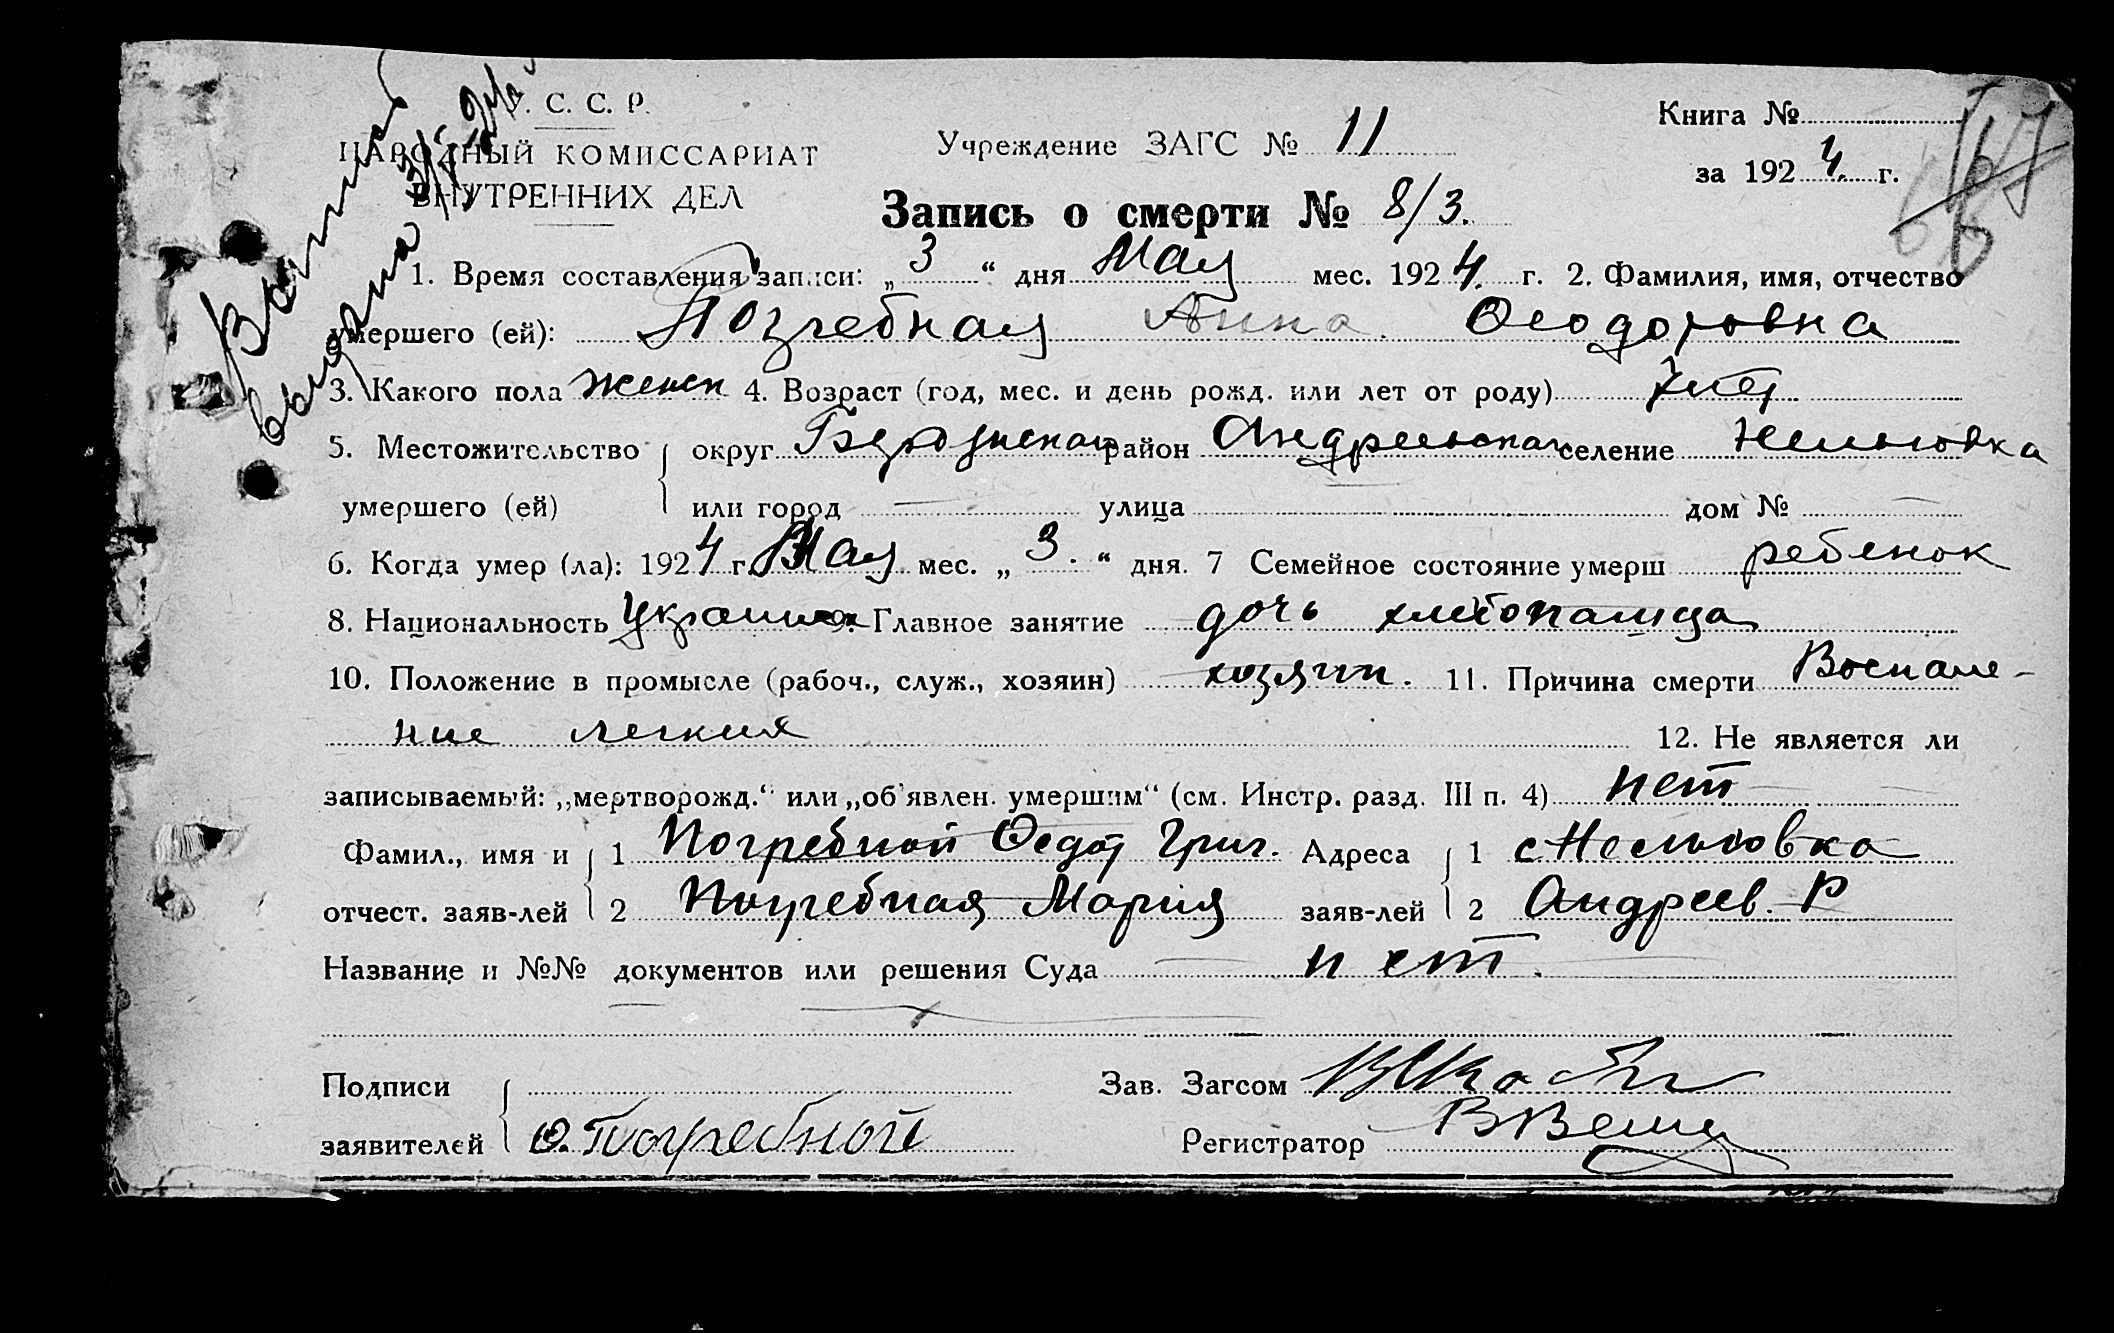 У. С. С. Р.
НАРОДНЫЙ КОМИССАРИАТ
ВНУТРЕННИХ ДЕЛ
Выпись
выдана 3/V-24г.
Учреждение ЗАГС № 11
Книга №
за 1924 г.
Запись о смерти № 8/3.
1. Время составления записи: „3“ дня Мая мес. 1924 г. 2. Фамилия, имя, отчество
умершего (ей): Погребная Анна Феодоровна
3. Какого пола женск 4. Возраст (год, мес. и день рожд. или лет от роду)
5. Местожительство округ район Андреевская селение Нельговка
умершего (ей) или город — улица — дом № —
6. Когда умер (ла): 1924 г. Мая мес. „3.“ дня. 7 Семейное состояние умерш ребенок
8. Национальность 9. Главное занятие дочь хлебопашца
10. Положение в промысле (рабоч., служ., хозяин) хозяин. 11. Причина смерти Воспале-
ние легких 12. Не является ли
записываемый: „мертворожд.“ или „об'явлен. умершим“ (см. Инстр. разд. III п. 4) нет
Фамил., имя и 1 Погребной Федор Григ. Адреса 1 с Нельговка
отчест. заяв-лей 2 Погребная Мария заяв-лей 2 Андреев. Р
Название и №№ документов или решения Суда нет.
Подписи Зав. Загсом
заявителей Ф. Погребной Регистратор